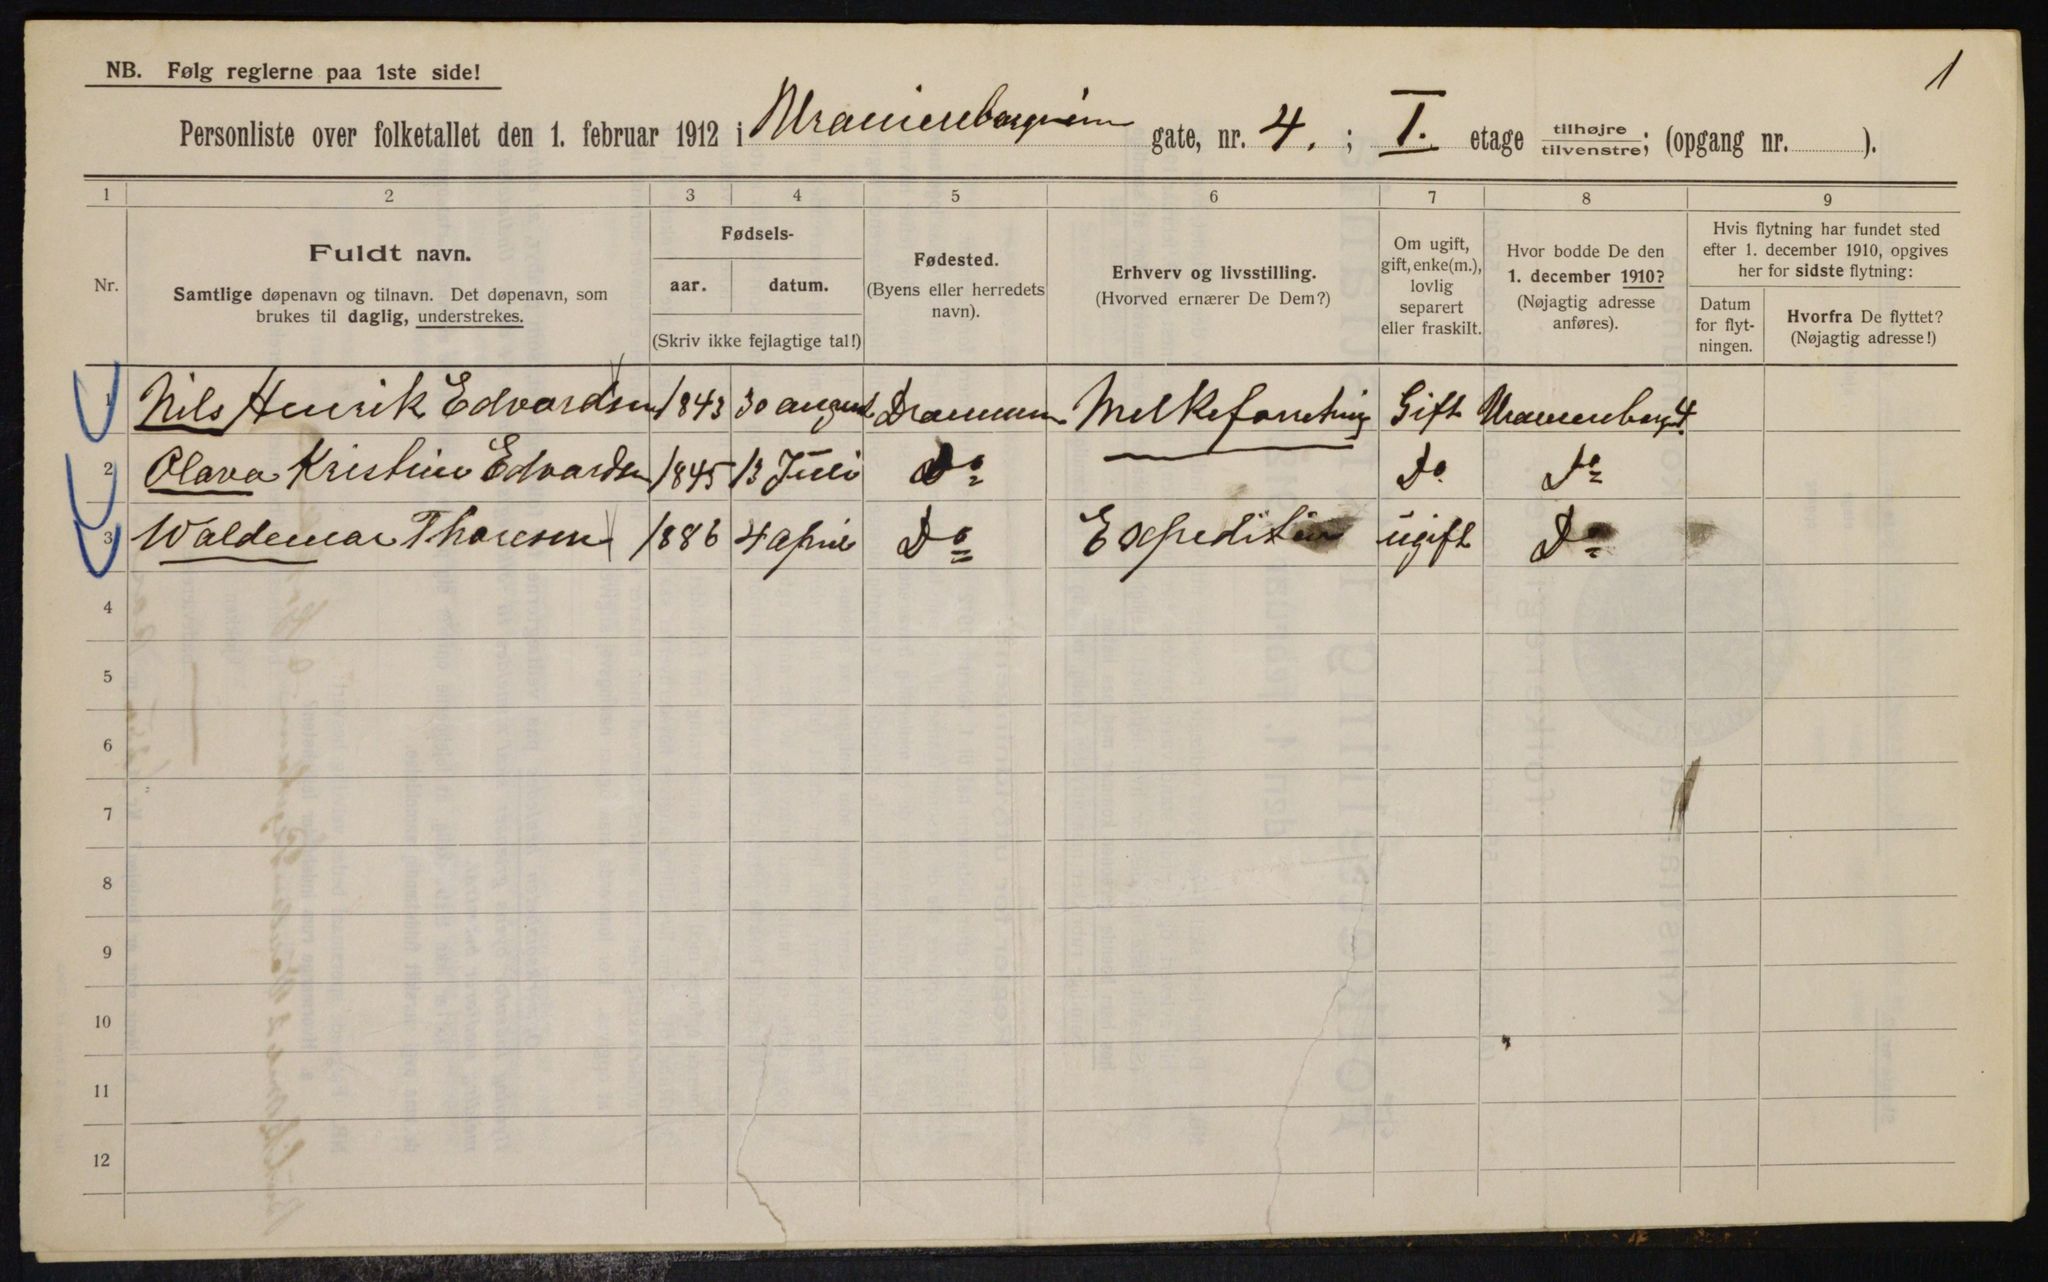 1
NB. Følg reglerne paa 1ste side!
Personliste over folketallet den 1. februar 1912 i Uranienborgveien gate, nr. 4. ; I. etage tilhøjre tilvenstre; (opgang nr. ).
1 2 3 4 5 6 7 8 9
Nr.
Fuldt navn.
Samtlige døpenavn og tilnavn. Det døpenavn, som
brukes til daglig, understrekes.
Fødsels-
aar. datum.
(Skriv ikke fejlagtige tal!)
Fødested.
(Byens eller herredets
navn).
Erhverv og livsstilling.
(Hvorved ernærer De Dem?)
Om ugift,
gift, enke(m.),
lovlig
separert
eller fraskilt.
Hvor bodde De den
1. december 1910?
(Nøjagtig adresse
anføres).
Hvis flytning har fundet sted
efter 1. december 1910, opgives
her for sidste flytning:
Datum
for flyt-
ningen.
Hvorfra De flyttet?
(Nøjagtig adresse!)
1 Nils Henrik Edvardsen 1843 30 august Drammen Melkeforretning Gift Uranienborgv 4.
2 Olava Kristine Edvardsen 1845 13 Juli Do Do Do
3 Waldemar Thoresen 1886 4 april Do Expeditør ugift Do
4
5
6
7
8
9
10
11
12